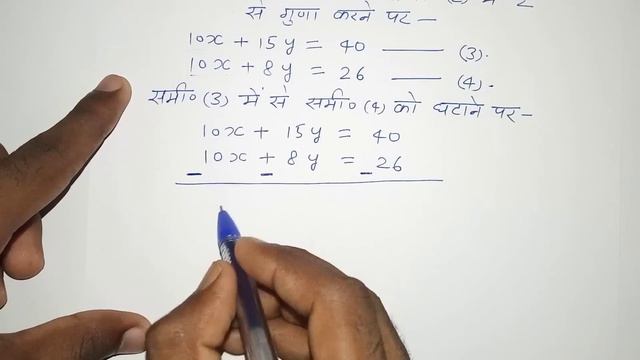 से गुणा करने पर —
10x + 15y = 40 —— (3).
10x + 8y = 26 —— (4).
समी० (3) में से समी० (4) को घटाने पर –
10x + 15y = 40
10x + 8y = 26